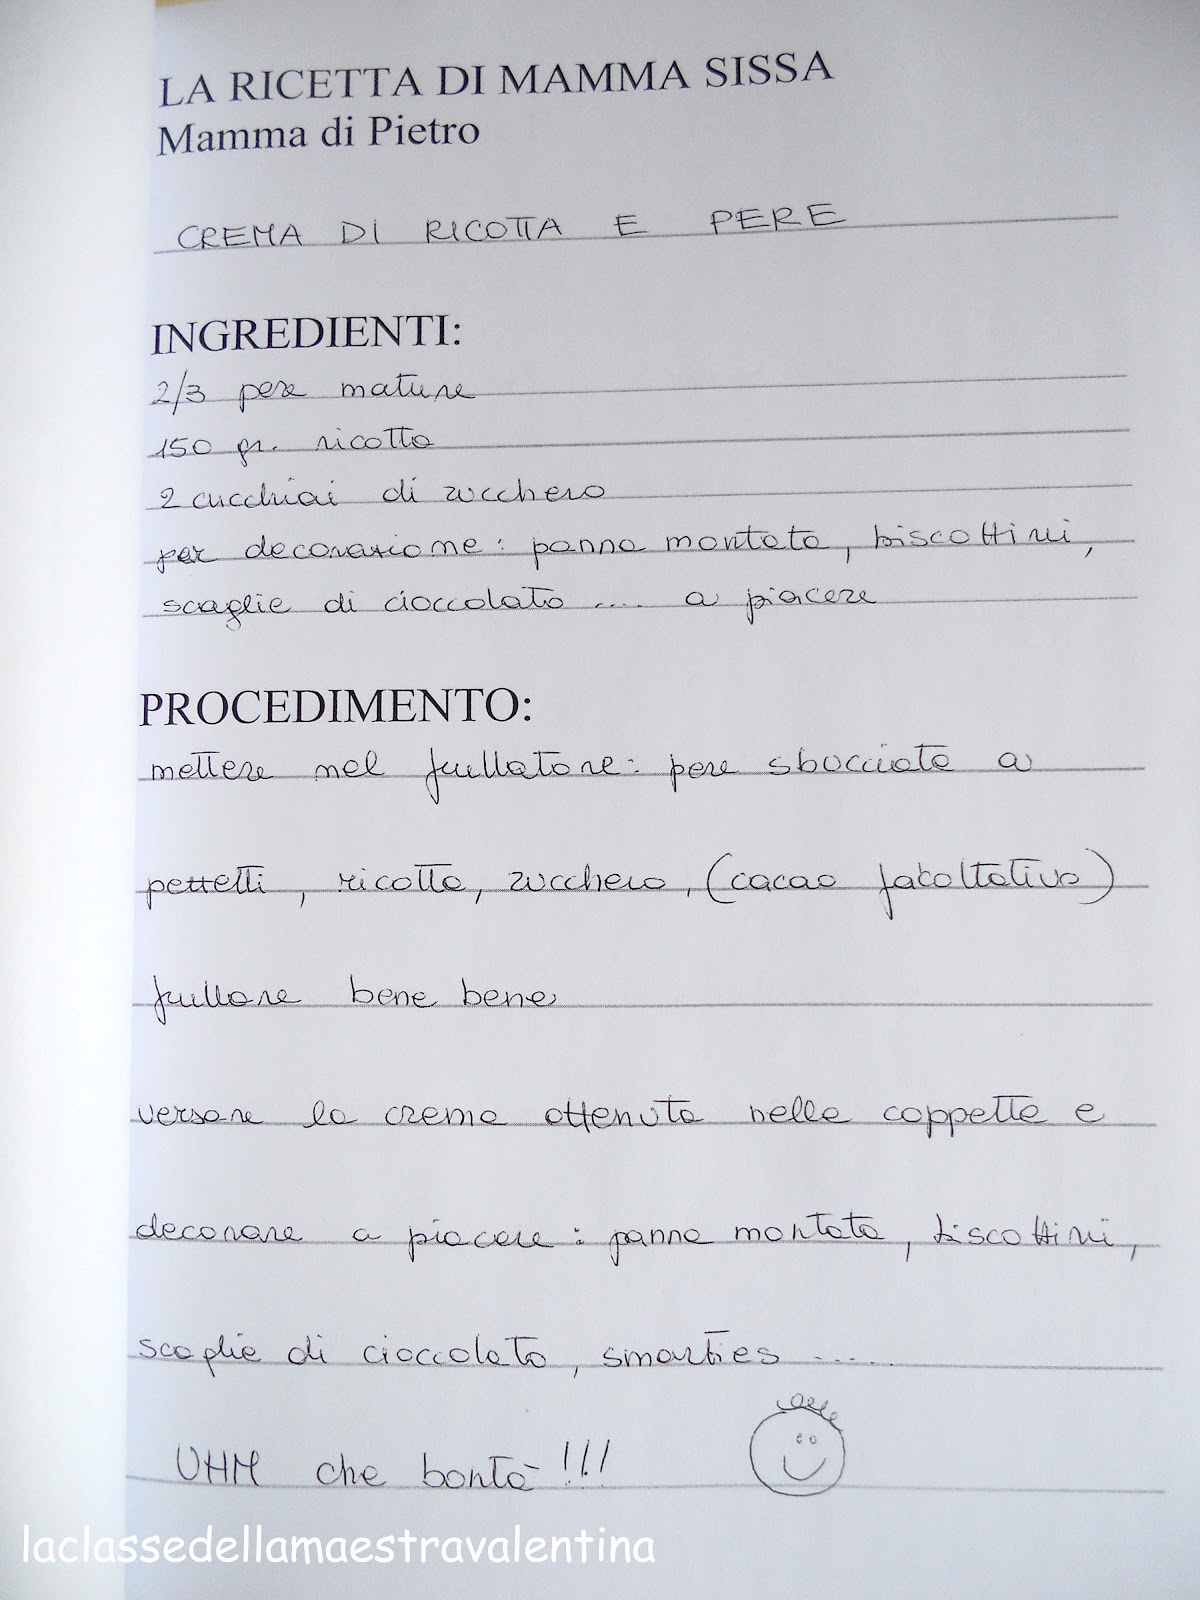 LA RICETTA DI MAMMA SISSA
Mamma di Pietro
CREMA DI RICOTTA E PERE
INGREDIENTI:
2/3 pere mature
150 gr. ricotta
2 cucchiai di zucchero
per decorazione: panna montata, biscottini,
scaglie di cioccolato .... a piacere
PROCEDIMENTO:
mettere nel frullatore: pere sbucciate a
pettetti, ricotta, zucchero, (cacao facoltativo)
frullare bene bene
versare la crema ottenuta nelle coppette e
decorare a piacere: panna montata, biscottini,
scaglie di cioccolato, smarties .....
UHM che bontà!!!
laclassedellamaestravalentina